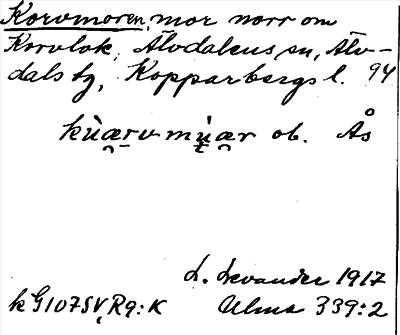 Korvmoren, mor norr om
Korvlok, Älvdalens sn, Älv-
dals tg, Kopparbergs l. 94
kùæ̯r̠v mų̀æ̯r ob. Ås
L. Levander 1917
k G107SV, R9:K Ulma 339:2